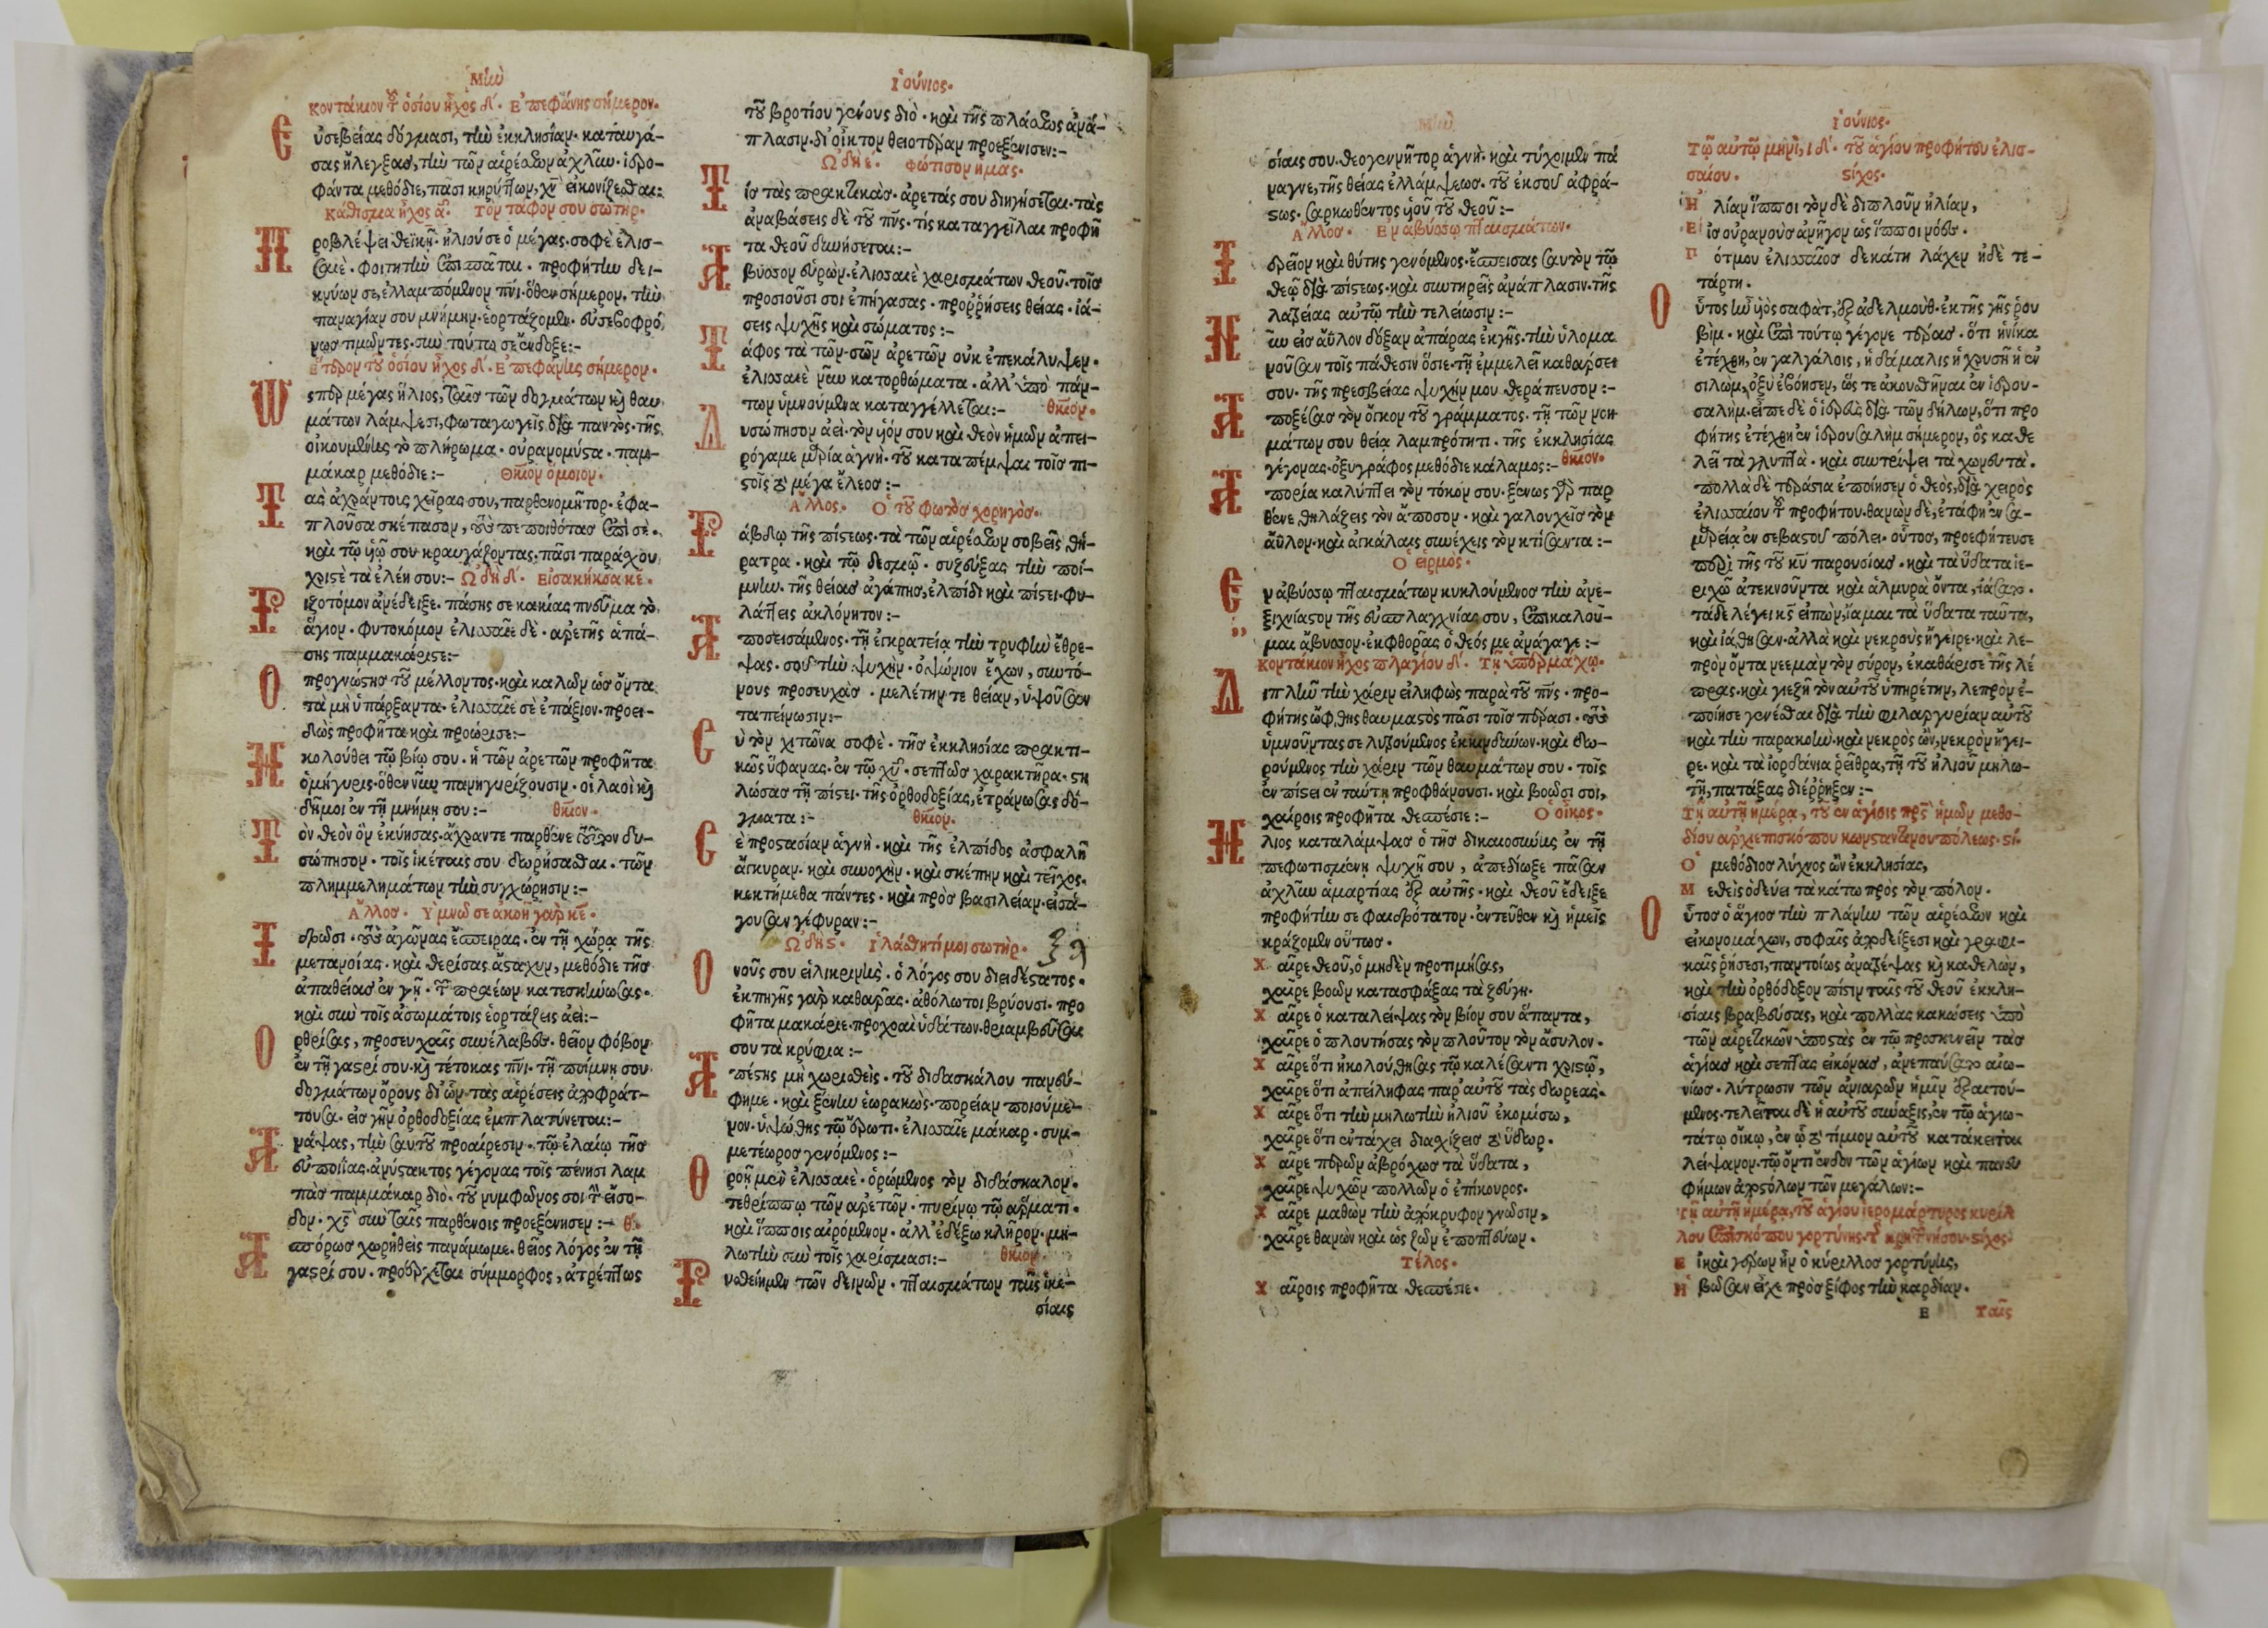 Μὴν
Κοντάκιον τοῦ ὁσίου ἦχος δ΄. Ἐπεφάνης σήμερον.
Εὐσεβείας δόγμασι, τὴν ἐκκλησίαν· καταυγά-
σας ἤλεγξας, τὴν τῶν αἱρέσεων ἀχλῦν· ἱερο-
φάντα μεθόδιε, πᾶσι κηρύττων, χν εἰκονίζεσθαι:
Κάθισμα ἦχος α. Τὸν ταφον σου σωτηρ.
Προβλέψει θεϊκῇ· ἡλιού σε ὁ μέγας· σοφὲ ἐλισ-
σαιὲ· φοιτητὴν ἐπισπᾶται· προφήτην δει-
κνύων σε, ἐλλαμπόμενον πνι· ὅθεν σήμερον, τὴν
παναγίαν σου μνήμην· ἑορτάζομεν· εὐσεβοφρό
νως τιμῶντες· σὺν τούτῳ σε ἔνδοξε:-
Ἕτερον τοῦ ὁσίου ἦχος δ΄. Ἐπεφάνης σήμερον.
Ὥσπερ μέγας ἥλιος, ταῖς τῶν δογμάτων κὶ θαυ
μάτων λάμψεσι, φωταγωγεῖς διὰ παντὸς· τῆς
οἰκουμένης τὸ πλήρωμα· οὐρανομύστα· παμ-
μάκαρ μεθόδιε:- Θκίον ὅμοιον.
Τὰς ἀχράντοις χεῖρας σου, παρθενομῆτορ· ἐφα-
πλοῦσα σκέπασον, τοὺς πεποιθότας ἐπὶ σὲ·
καὶ τῷ ὑῷ σου κραυγάζοντας· πᾶσι παράσχου
χριστὲ τὰ ἐλέη σου:- Ὠδὴ δ΄. Εἰσακήκοα κε.
Ῥιζοτόμον ἀνέδειξε· πάσης σε κακίας πνεῦμα τὸ
ἅγιον· φυτοκόμον ἐλισσαῖε δὲ· ἀρετῆς ἁπά-
σης παμμακάριστε:-
Ὁ προγνώστης τοῦ μέλλοντος· καὶ καλῶν ὡς ὄντα
τὰ μὴ ὑπάρξαντα· ἐλισσαῖε σὲ ἐπάξιον· προει-
δὼς προφῆτα καὶ προώρισε:-
Ἠκολούθει τῷ βίῳ σου· ἡ τῶν ἀρετῶν προφῆτα
ὁμήγυρις· ὅθεν νῦν πανηγυρίζουσιν· οἱ λαοὶ κὶ
δῆμοι ἐν τῇ μνήμῃ σου:- θκίον.
Τὸν θεὸν ὃν ἐκύησας· ἄχραντε παρθένε τοῦτον δυ-
σώπησον· τοῖς ἱκέταις σου δωρήσασθαι· τῶν
πλημμελημάτων τὴν συγχώρησιν:-
Ἄλλος. Ὑμνῶ σε ἀκοὴν γὰρ κε.
Ἱδρῶσι· τοὺς ἀγῶνας ἔσπειρας· ἐν τῇ χώρᾳ τῆς
μετανοίας· καὶ θερίσας ἄσταχυν, μεθόδιε τῆς
ἀπαθείας ἐν γῇ· τῶν πραέων κατεσκήνωσας·
καὶ σὺν τοῖς ἀσωμάτοις ἑορτάζεις ἀεί:-
Ὀρθρίσας, προσευχαῖς συνέλαβες· θεῖον φόβον
ἐν τῇ γαστρί σου· κὶ τέτοκας πνι· τῇ ποίμνῃ σου
δογμάτων ὅρους δι' ὧν· τὰς αἱρέσεις ἀποφράτ-
τουσα· εἰς γῆν ὀρθοδοξίας ἐμπλατύνεται:-
Ἀνάψας, τὴν σαυτοῦ προαίρεσιν· τῷ ἐλαίῳ τῆς
εὐποιΐας· ἀνύστακτος γέγονας τοῖς πένησι λαμ
πὰς παμμάκαρ διὸ· τοῦ νυμφῶνος σοι τὴν εἴσο-
δον· χς σὺν ταῖς παρθένοις προεξένησεν:- θ.
Ἀσπόρως χωρηθεὶς πανάμωμε· θεῖος λόγος ἐν τῇ
γαστρί σου· προέρχεται σύμμορφος, ἀτρέπτως
Ἰούνιος.
τοῦ βροτίου γένους διὸ· καὶ τῆς πλάσεως ἀνά-
πλασιν· δι' οἶκτον θειοτέραν προεξένισεν:-
Ὠδὴ ε. Φώτισον ἡμᾶς.
Τίς τὰς πρακτικὰς· ἀρετάς σου διηγήσεται· τὰς
ἀναβάσεις δὲ τοῦ πνς· τίς καταγγεῖλαι προφῆ
τα θεοῦ δυνήσεται:-
Ἄβυσσον εὑρὼν· ἐλισσαιὲ χαρισμάτων θεοῦ· τοῖς
προσιοῦσι σοι ἐπήγασας· προρρήσεις θείας· ἰά-
σεις ψυχῆς καὶ σώματος:-
Τάφος τὰ τῶν σῶν ἀρετῶν οὐκ ἐπεκάλυψεν·
ἐλισσαιὲ νῦν κατορθώματα· ἀλλ' ὑπὸ πάν-
των ὑμνούμενα καταγγέλλεται:- θκίον.
Δυσώπησον ἀεὶ· τὸν ὑόν σου καὶ θεὸν ἡμῶν ἀπει-
ρόγαμε μρία ἁγνὴ· τοῦ καταπέμψαι τοῖς πι-
στοῖς τὸ μέγα ἔλεος:-
Ἄλλος. Ὁ τοῦ φωτὸς χορηγὸς.
Ῥάβδῳ τῆς πίστεως· τὰ τῶν αἱρέσεων σοβεῖς θή-
ρατρα· καὶ τῷ δεσμῷ· συζεύξας τὴν ποί-
μνην· τῆς θείας ἀγάπης, ἐλπίδι καὶ πίστει· φυ-
λάττεις ἀκλόνητον:-
Ἀποσεισάμενος· τῇ ἐγκρατείᾳ τὴν τρυφὴν ἔθρε-
ψας· σοῦ τὴν ψυχὴν· ὀψώνιον ἔχων, συντό-
νους προσευχὰς· μελέτην τε θείαν, ὑψοῦσαν
ταπείνωσιν:-
Εὐ τὸν χιτῶνα σοφὲ· τῆς ἐκκλησίας πρακτι-
κῶς ὕφανας· ἐν τῷ χῦ· σεπτῶς χαρακτῆρα· στη
λώσας τῇ πίστει· τῆς ὀρθοδοξίας, ἐτράνωσας δό-
γματα:- θκίον.
Σὲ προστασίαν ἁγνὴ· καὶ τῆς ἐλπίδος ἀσφαλῆ
ἄγκυραν· καὶ συνοχὴν· καὶ σκέπην καὶ τεῖχος·
κεκτήμεθα πάντες· καὶ πρὸς βασιλείαν· εἰσά-
γουσαν γέφυραν:-
Ὠδὴ ς. Ἱλάσθητί μοι σωτὴρ.
Ὁ νοῦς σου εἰλικρινὴς· ὁ λόγος σου διειδέστατος·
ἐκ πηγῆς γὰρ καθαρᾶς· ἀθόλωτοι βρύουσι· προ
φῆτα μακάριε· προχοαὶ ὑδάτων· θριαμβεῦσαι
σου τὰ κρύφια:-
Ἀπέστης μὴ χωρισθεὶς· τοῦ διδασκάλου πανεύ-
φημε· καὶ ξένην ἑωρακὼς· πορείαν ποιούμε-
νον· ὑψώθης τῷ ἔρωτι· ἐλισσαῖε μάκαρ· συμ-
μετέωρος γενόμενος:-
Θροῇ μὲν ἐλισσαιὲ· ὁρώμενος τὸν διδάσκαλον·
τεθρίππῳ τῶν ἀρετῶν· πυρίνῳ τῷ ἅρματι·
καὶ ἵπποις αἰρόμενον· ἀλλ' ἐδέξω κλῆρον· μη-
λωτὴν σὺν τοῖς χαρίσμασι:- θκίον.
Ῥυσθείημεν τῶν δεινῶν· πταισμάτων ταῖς ἱκε-
σίαις
Μὴν
σίαις σου· θεογεννῆτορ ἁγνὴ· καὶ τύχοιμεν πά
ναγνε, τῆς θείας ἐλλάμψεως· τοῦ ἐκ σοῦ ἀφρά-
στως· σαρκωθέντος ὑοῦ τοῦ θεοῦ:-
Ἄλλος. Ἐν ἀβύσσῳ πταισμάτων.
Ἱερεῖον καὶ θύτης γενόμενος· ἔσπεισας σαυτὸν τῷ
θεῷ διὰ πίστεως· καὶ συντηρεῖς ἀνάπλασιν· τῆς
λαξείας αὐτῷ τὴν τελείωσιν:-
Νῦν εἰς ἄϋλον δόξαν ἀπάρας ἐκ γῆς· τὴν ὑλομα
νοῦσαν τοῖς πάθεσιν ὅσιε· τῇ ἐμμελεῖ καθαρσει
σου· τῆς πρεσβείας ψυχήν μου θεράπευσον:-
Ἀποξέσας τὸν ὄγκον τοῦ γράμματος· τῇ τῶν νοη-
μάτων σου θείᾳ λαμπρότητι· τῆς ἐκκλησίας
γέγονας· ὀξυγράφος μεθόδιε κάλαμος:- θκίον.
Ἀπορία καλύπτει τὸν τόκον σου· ξένως γὰρ παρ
θένε θηλάζεις τὸν ἄποσον· καὶ γαλουχεῖς τὸν
ἄϋλον· καὶ ἀγκάλαις συνέχεις τὸν κτίσαντα:-
Ὁ εἱρμὸς.
Ἐν ἀβύσσῳ πταισμάτων κυκλούμενος τὴν ἀνε-
ξιχνίαστον τῆς εὐσπλαγχνίας σου, ἐπικαλοῦ-
μαι ἄβυσσον· ἐκ φθορᾶς ὁ θεός με ἀνάγαγε:-
Κοντάκιον ἦχος πλαγίου δ΄. Τῇ ὑπερμάχῳ.
Διπλῆν τὴν χάριν εἰληφὼς παρὰ τοῦ πνς· προ-
φήτης ὤφθης θαυμαστὸς πᾶσι τοῖς πέρασι· τοὺς
ὑμνοῦντας σε λυτρούμενος ἐκ κινδύνων· καὶ δω-
ρούμενος τὴν χάριν τῶν θαυμάτων σου· τοῖς
ἐν πίστει ἐν ταύτῃ προφθάνουσι· καὶ βοῶσι σοι,
χαίροις προφῆτα θεσπέσιε:- Ὁ οἶκος.
Ἥλιος καταλάμψας ὁ τῆς δικαιοσύνης ἐν τῇ
πεφωτισμένῃ ψυχῇ σου, ἀπεδίωξε πᾶσαν
ἀχλῦν ἁμαρτίας ἐξ αὐτῆς· καὶ θεοῦ ἔδειξε
προφήτην σε φαιδρότατον· ἐντεῦθεν κὶ ἡμεῖς
κράζομεν οὕτως.
Χαῖρε θεοῦ, ὁ μηδὲν προτιμήσας,
χαῖρε βοῶν κατασφάξας τὰ ζεύγη.
Χαῖρε ὁ καταλείψας τὸν βίον σου ἅπαντα,
χαῖρε ὁ πλουτήσας τὸν πλοῦτον τὸν ἄσυλον.
Χαῖρε ὅτι ἠκολούθησας τῷ καλέσαντι χριστῷ,
χαῖρε ὅτι ἀπείληφας παρ' αὐτοῦ τὰς δωρεὰς.
Χαῖρε ὅτι τὴν μηλωτὴν ἡλιοῦ ἐκομίσω,
χαῖρε ὅτι ἐν τάχει διασχίζεις τὸ ὕδωρ.
Χαῖρε περῶν ἀβρόχως τὰ ὕδατα,
χαῖρε ψυχῶν πολλῶν ὁ ἐπίκουρος.
Χαῖρε μαθὼν τὴν ἀπόκρυφον γνῶσιν,
χαῖρε θανὼν καὶ ὡς ζῶν ἐποπτεύων.
Τέλος.
Χαίροις προφῆτα θεσπέσιε.
Ἰούνιος.
Τῷ αὐτῷ μηνὶ, ιδ΄. τοῦ ἁγίου προφήτου ἐλισ-
σαίου. στίχος.
Ἡλίαν ἵπποι τὸν δὲ διπλοῦν ἡλίαν,
Εἰς οὐρανοὺς ἀνῆγον ὡς ἵπποι νόες.
Πότμον ἐλισσαῖος δεκάτῃ λάχεν ἠδὲ τε-
τάρτῃ.
Οὗτος ἦν ὑὸς σαφὰτ, ἐξ ἀδελμοὺθ· ἐκ τῆς γῆς ῥου
βὶμ· καὶ ἐπὶ τούτῳ γέγονε τέρας· ὅτι ἡνίκα
ἐτέχθη, ἐν γαλγάλοις, ἡ δάμαλις ἡ χρυσῆ ἡ ἐν
σιλὼμ, ὀξὺ ἐβόησεν, ὥς τε ἀκουσθῆναι ἐν ἱερου-
σαλὴμ· εἶπε δὲ ὁ ἱερεὺς διὰ τῶν δήλων, ὅτι προ
φήτης ἐτέχθη ἐν ἱερουσαλὴμ σήμερον, ὃς καθε
λεῖ τὰ γλυπτὰ· καὶ συντρίψει τὰ χωνευτὰ.
πολλὰ δὲ τεράστια ἐποίησεν ὁ θεὸς, διὰ χειρὸς
ἐλισσαίου τοῦ προφήτου· θανὼν δὲ, ἐτάφη ἐν σα-
μαρείᾳ ἐν σεβαστοῦ πόλει· οὗτος, προεφήτευσε
περὶ τῆς τοῦ κυ παρουσίας· καὶ τὰ ὕδατα ἱε-
ριχὼ ἀτεκνοῦντα καὶ ἁλμυρὰ ὄντα, ἰάσατο.
τάδε λέγει κς εἰπὼν, ἴαμαι τὰ ὕδατα ταῦτα,
καὶ ἰάθησαν· ἀλλὰ καὶ νεκροὺς ἤγειρε· καὶ λε-
πρὸν ὄντα νεεμὰν τὸν σύρον, ἐκαθάρισε τῆς λέ
πρας· καὶ γιεζῆ τὸν αὐτοῦ ὑπηρέτην, λεπρὸν ἐ-
ποίησε γενέσθαι διὰ τὴν φιλαργυρίαν αὐτοῦ
καὶ τὴν παρακοὴν· καὶ νεκρὸς ὢν, νεκρὸν ἤγει-
ρε· καὶ τὰ ἰορδάνια ῥεῖθρα, τῇ τοῦ ἡλιοῦ μηλω-
τῇ, πατάξας διέρρηξεν:-
Τῇ αὐτῇ ἡμέρᾳ, τοῦ ἐν ἁγίοις πρς ἡμῶν μεθο-
δίου ἀρχιεπισκόπου κωνσταντίνου πόλεως. στί.
Ὁ μεθόδιος λύχνος ὢν ἐκκλησίας,
Μεθεὶς ὁδεύει τὰ κάτω πρὸς τὸν πόλον.
Οὗτος ὁ ἅγιος τὴν πλάνην τῶν αἱρέσεων καὶ
εἰκονομάχων, σοφαῖς ἀποδείξεσι καὶ γραφι-
καῖς ῥήσεσι, παντοίως ἀνατρέψας κὶ καθελὼν,
καὶ τὴν ὀρθόδοξον πίστιν ταῖς τοῦ θεοῦ ἐκκλη-
σίαις βραβεύσας, καὶ πολλὰς κακώσεις ὑπὸ
τῶν αἱρετικῶν ὑποστὰς ἐν τῷ προσκυνεῖν τὰς
ἁγίας καὶ σεπτὰς εἰκόνας, ἀνεπαύσατο αἰω-
νίως· λύτρωσιν τῶν ἀνιαρῶν ἡμῖν ἐξαιτού-
μενος· τελεῖται δὲ ἡ αὐτοῦ σύναξις, ἐν τῷ ἁγιω-
τάτῳ οἴκῳ, ἐν ᾧ τὸ τίμιον αὐτοῦ κατάκειται
λείψανον· τῷ ὄντι ἔνδον τῶν ἁγίων καὶ πανευ
φήμων ἀποστόλων τῶν μεγάλων:-
Τῇ αὐτῇ ἡμέρᾳ, τοῦ ἁγίου ἱερομάρτυρος κυρίλ
λου ἐπισκόπου γορτύνης· τῆς κρήτης νήσου· στίχος.
Εἰ καὶ γέρων ἦν ὁ κύριλλος γορτύνης,
Ἡβῶσαν εἶχε πρὸς ξίφος τὴν καρδίαν.
Ε ταῖς